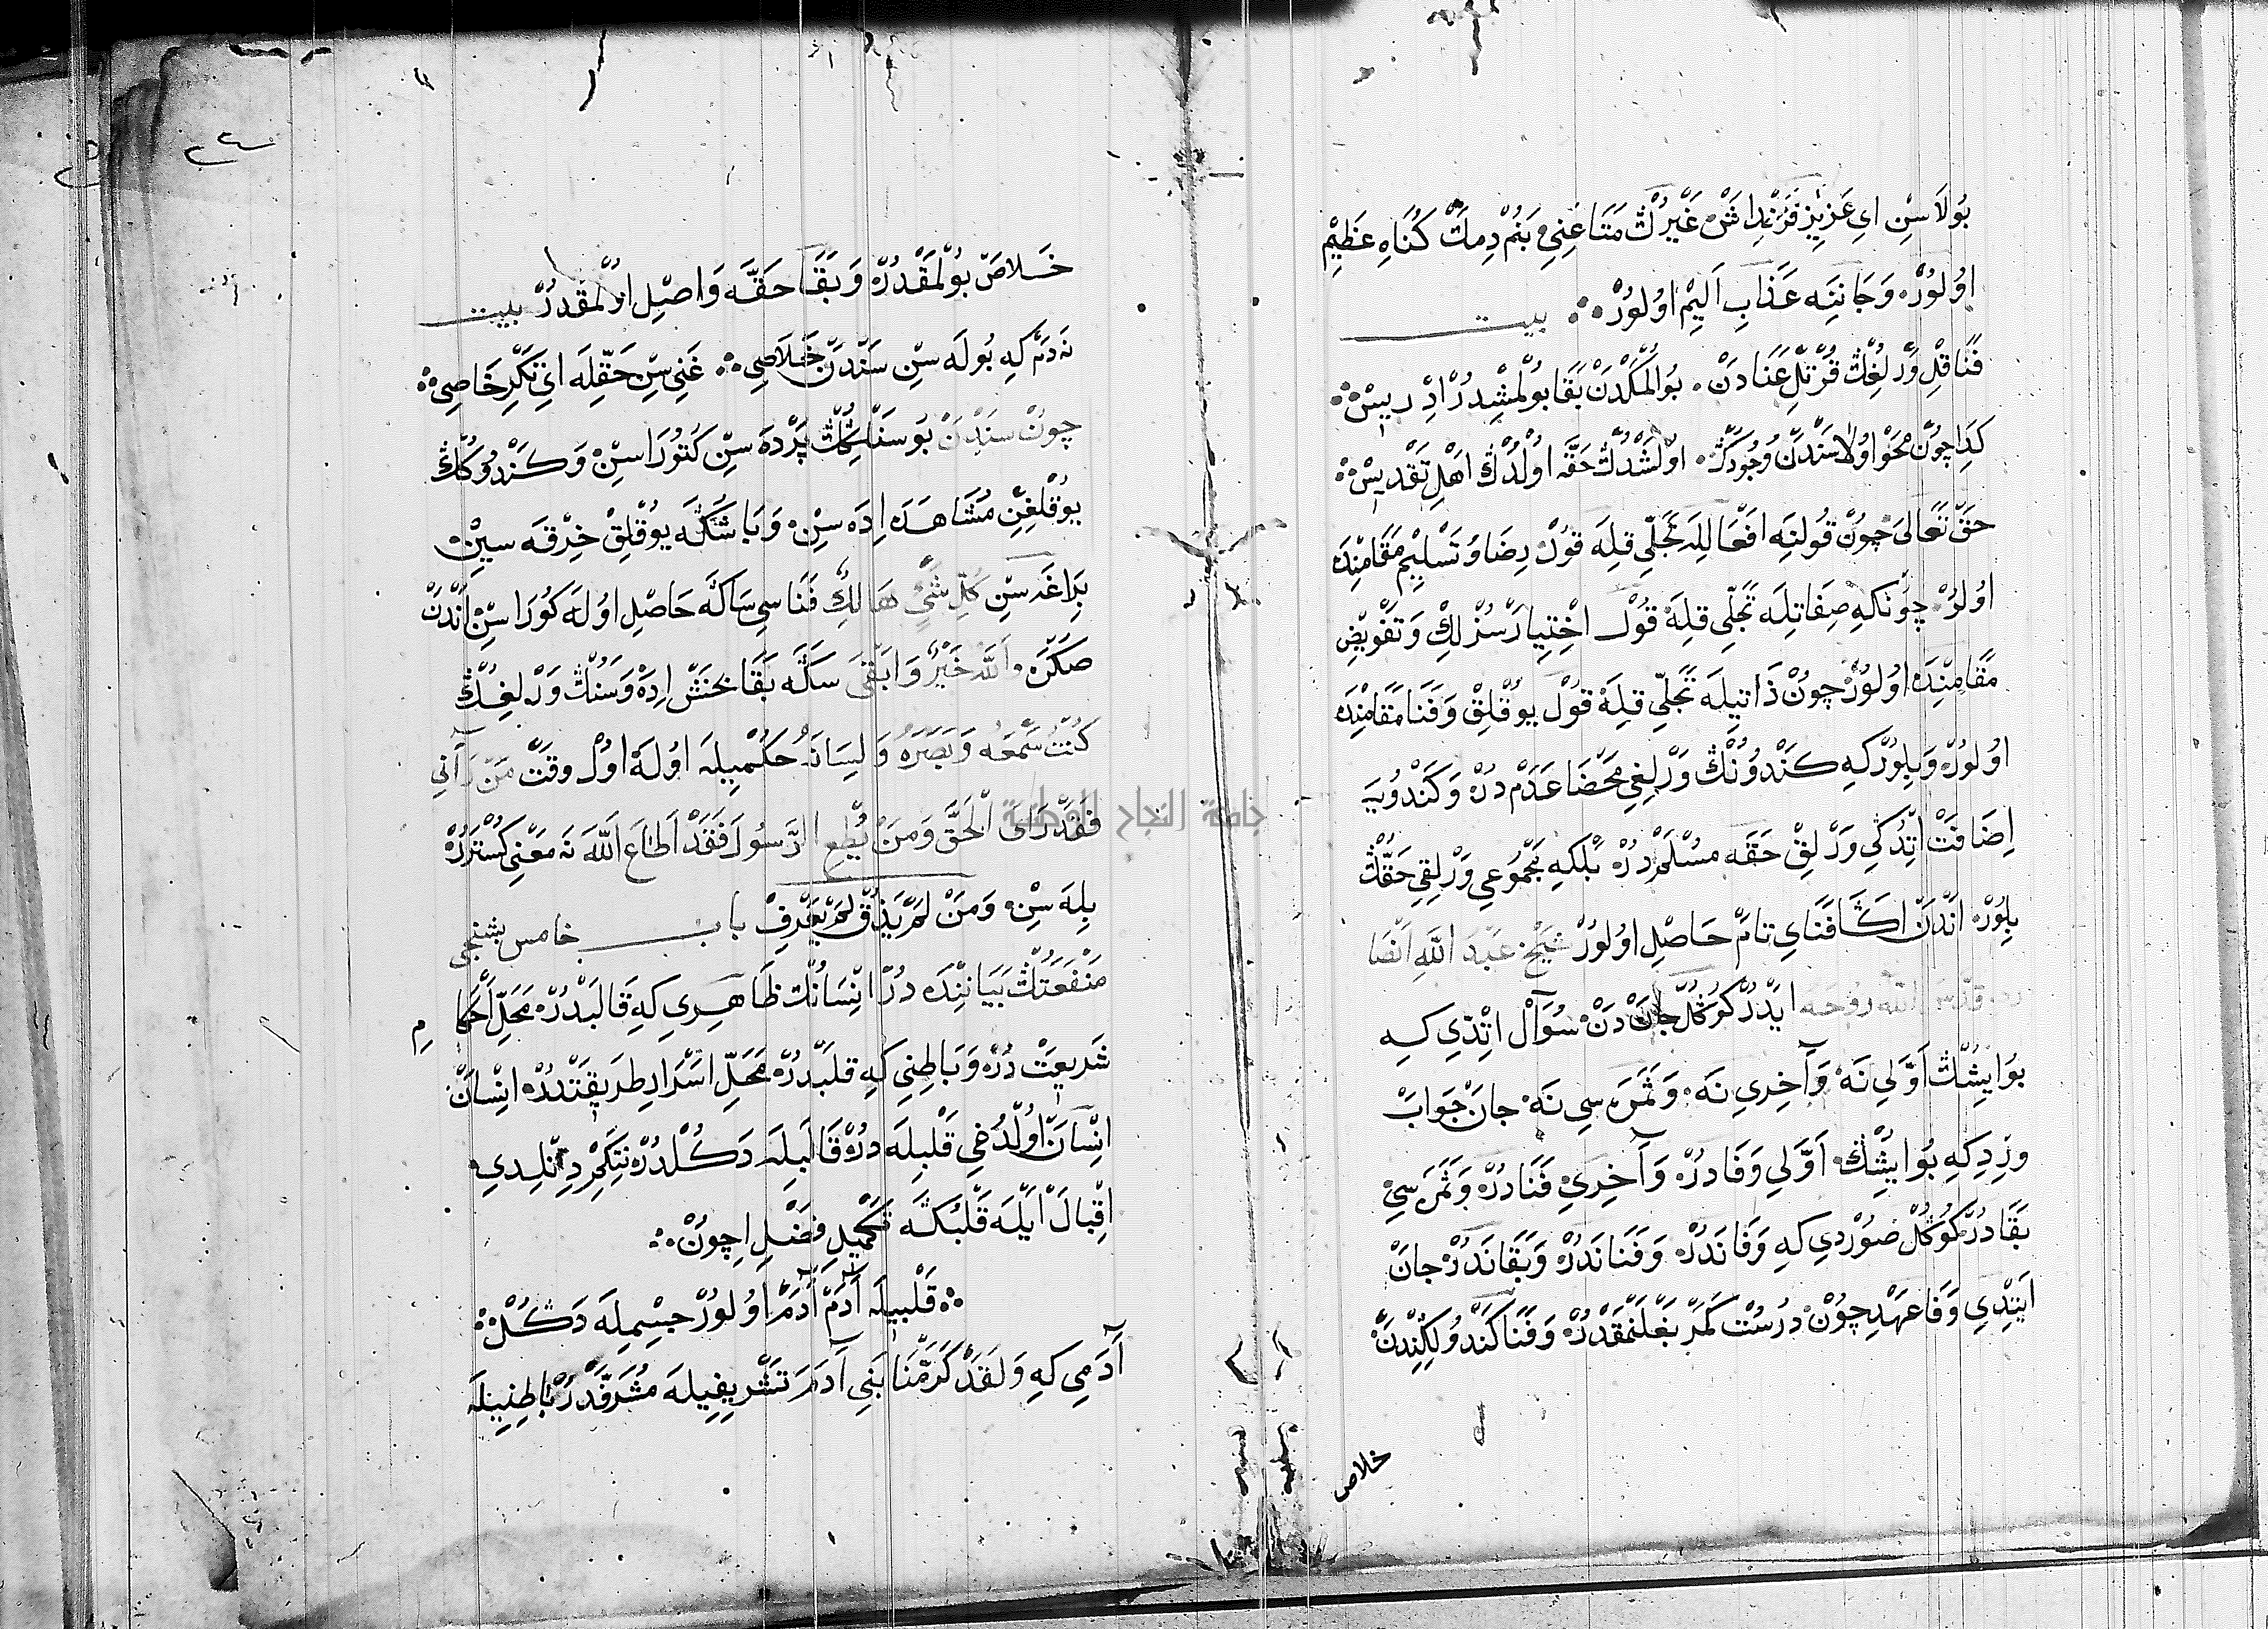 بُولاَسِنْ اىِ عَزِيزِ قَرَنْداشْ غَيْرُكْ مَتَاعْنِي بَنُمْ دِمَكْ كُنَاهِ عَظِيمْ
اوُلوُرْ وَجَانِنَه عَذَابِ اَلِيمْ اوُلوُرْ بيت
فَنَا قِلْ وَرْلِغِكْ قُرْتِلْ عَنَادَنْ بُولَمَكْدَنْ بَقَا بُولْمِشْدُرْ اِدْرِيسْ
كَدَا چُونْ مَحْوْ اوُلاَ سَنْدَنْ وُجُودُكْ اوُلَشْدُكْ حَقَّه اوُلْدُكْ اَهْلِ تَقْدِيسْ
حَقّ تَعَالىَ چُونْ قُولِنَه اَفْعَالِلَه تَجَلِّي قِلَه قُولْ رِضَا وُ تَسْلِيمْ مَقَامِنْدَه
اوُلُرْ چُونْكِهِ صِفَاتِلَه تَجَلِّي قِلَه قُولْ اخْتِيَارْسُزْلِكْ وَتَفْوِيضْ
مَقَامِنْدَه اوُلوُرْ چُونْ ذَاتِيلَه تَجَلِّي قِلَه قُولْ يُوقْلِقْ وَفَنَا مَقَامِنْدَه
اوُلوُرْ وَبِلوُرْكِهِ كَنْدُونُكْ وَرْلِغِي مَحْضَا عَدَمْ دُرْ وَكَنْدُويَه
اِضَافَتْ اتْدُكِي وَرْلِقْ حَقَّه مُسَلَّمْدُرْ بَلْكِهِ مَجْمُوعِي وَرْلِقِي حَقّكْ
بِلُورْ اَنْدَنْ اكَا فَنَاىِ تَامْ حَاصِلْ اوُلوُرْ شَيْخْ عَبْدَ اللّٰهِ اَنْصَا
رى قَدَّسَ اللّٰه رُوحَه ايْدُرْ كُوكُلْ جَانْدَنْ سُوَآلْ اتْدِي كِه
بُو ايشُكْ اَوَّلِي نَه وَآخِرِي نَه وَثَمَرَه سِي نَه جَانْ جَوَابْ
وِرْدِكِهِ بُو ايشُكْ اَوَّلِي وَفَا دُرْ وَآخِرِي فَنَا دُرْ وَثَمَرَه سِي
بَقَا دُرْ كُوكُلْ صُورْدِي كِه وَفَا نَدُرْ وَفَنَا نَدُرْ وَبَقَا نَدُرْ جَانْ
اَيْتْدِي وَفَا عَهْدِچُونْ دُرُسْتْ كَمَرْ بَغْلَنْمَقْدُرْ وَفَنَا كَنْدُولِكِنْدَنْ
خلاص
خَلاصْ بُولْمَقْدُرْ وَبَقَا حَقَّه وَاصِلْ اوُلْمَقْدُرْ بيت
نَه دَمْ كِهِ بُولَه سِنْ سَنْدَنْ خَلاَصِي غَنِي سِنْ حَقِّلَه اىِ تَكْرِ خَاصِي
چُونْ سَنْدَنْ بُو سَنْلِكُكْ پَرْدَه سِنْ كُتُورَاسِنْ وَكَنْدُوكُكْ
يُوقْلِغِنْ مُشَاهَدَه اِدَه سِنْ وَبَاشُكَه يُوقْلِقْ خِرْقَه سِينْ
بَرَاغَه سِنْ كُلّ شَىْءٍ هَالِكٌ فَنَاسِي سَاكَه حَاصِلْ اوُلَه كُورَاسِنْ اَنْدَنْ
صَكْرَه وَاللّٰه خَيْرٌ وَابَقْىَ سَكَه بَقَا بَخْشْ اِدَه وَسَنُكْ وَرْلِغِكْ
كُنْتُ سَمْعَه وَبَصَرَهُ وَلِسَانَهُ حُكْمِيلَه اوُلَه اوُلْ وَقْتْ مَنْ رَآَنِي
فَقَدْ رَاىَ الْحَقَّ وَمَنْ يُطِعِ الرَّسُولَ فَقَدْ اَطَاعَ اللّٰهَ نَه مَعْنِي كُسْتَرُرْ
بِلَه سِنْ وَمَنْ لَمْ يَذُقْ لَمْ يَعْرِفْ باب خامس بشنجى
مَنْفَعَتُكْ بَيَانِنْدَه دُرْ انْسَانُكْ ظَاهِرِي كِهِ قَالَبْدُرْ مَحَلّ اَحْكَا م
شَرِيعَتْ دُرْ وَبَاطِنِي كِهِ قَلْبْدُرْ مَحَلّ اَسْرَارِ طَرِيقَتْدُرْ انْسَانْ
انْسَانْ اوُلْدُغِي قَلْبِلَه دُرْ قَالَبِلَه دَكُلْدُرْ نِتَكِمْ دِنِلْدِي
اِقْبَالْ اَيْلَه قَلْبُكَه تَكْمِيلِ فَضْلْ اِچُونْ
قَلْبِيلَه آدَمْ آدَمْ اوُلوُرْ جِسْمِلَه دَكُلْ
آدَمِي كِهِ وَلَقَدْ كَرَّمْنَا بَنِي آدَمَ تَشْرِيفِيلَه مُشَرَّفْدُرْ بَاطِنِيلَه